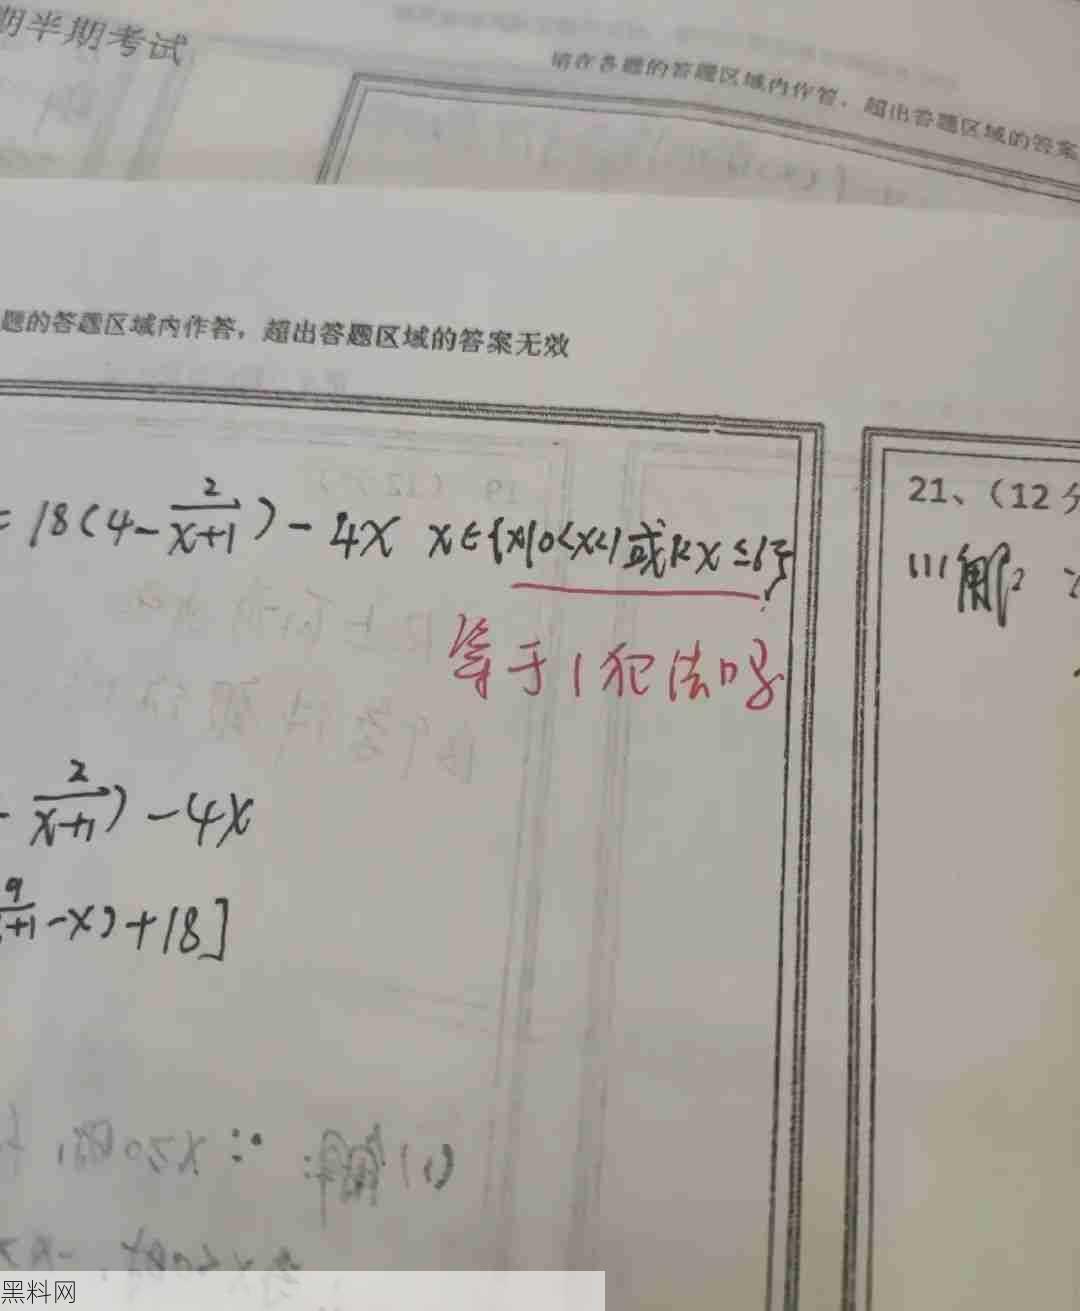 期半期考试
请在各题的答题区域内作答，超出答题区域的答案
题的答题区域内作答，超出答题区域的答案无效
= 18(4 - 2/(x+1)) - 4x x∈{x|0<x<1或1<x≤6}
等于1犯法吗
21、(12分
(1)解：
- 2/(x+1)) - 4x
9/(x+1) - x) + 18]
黑料网